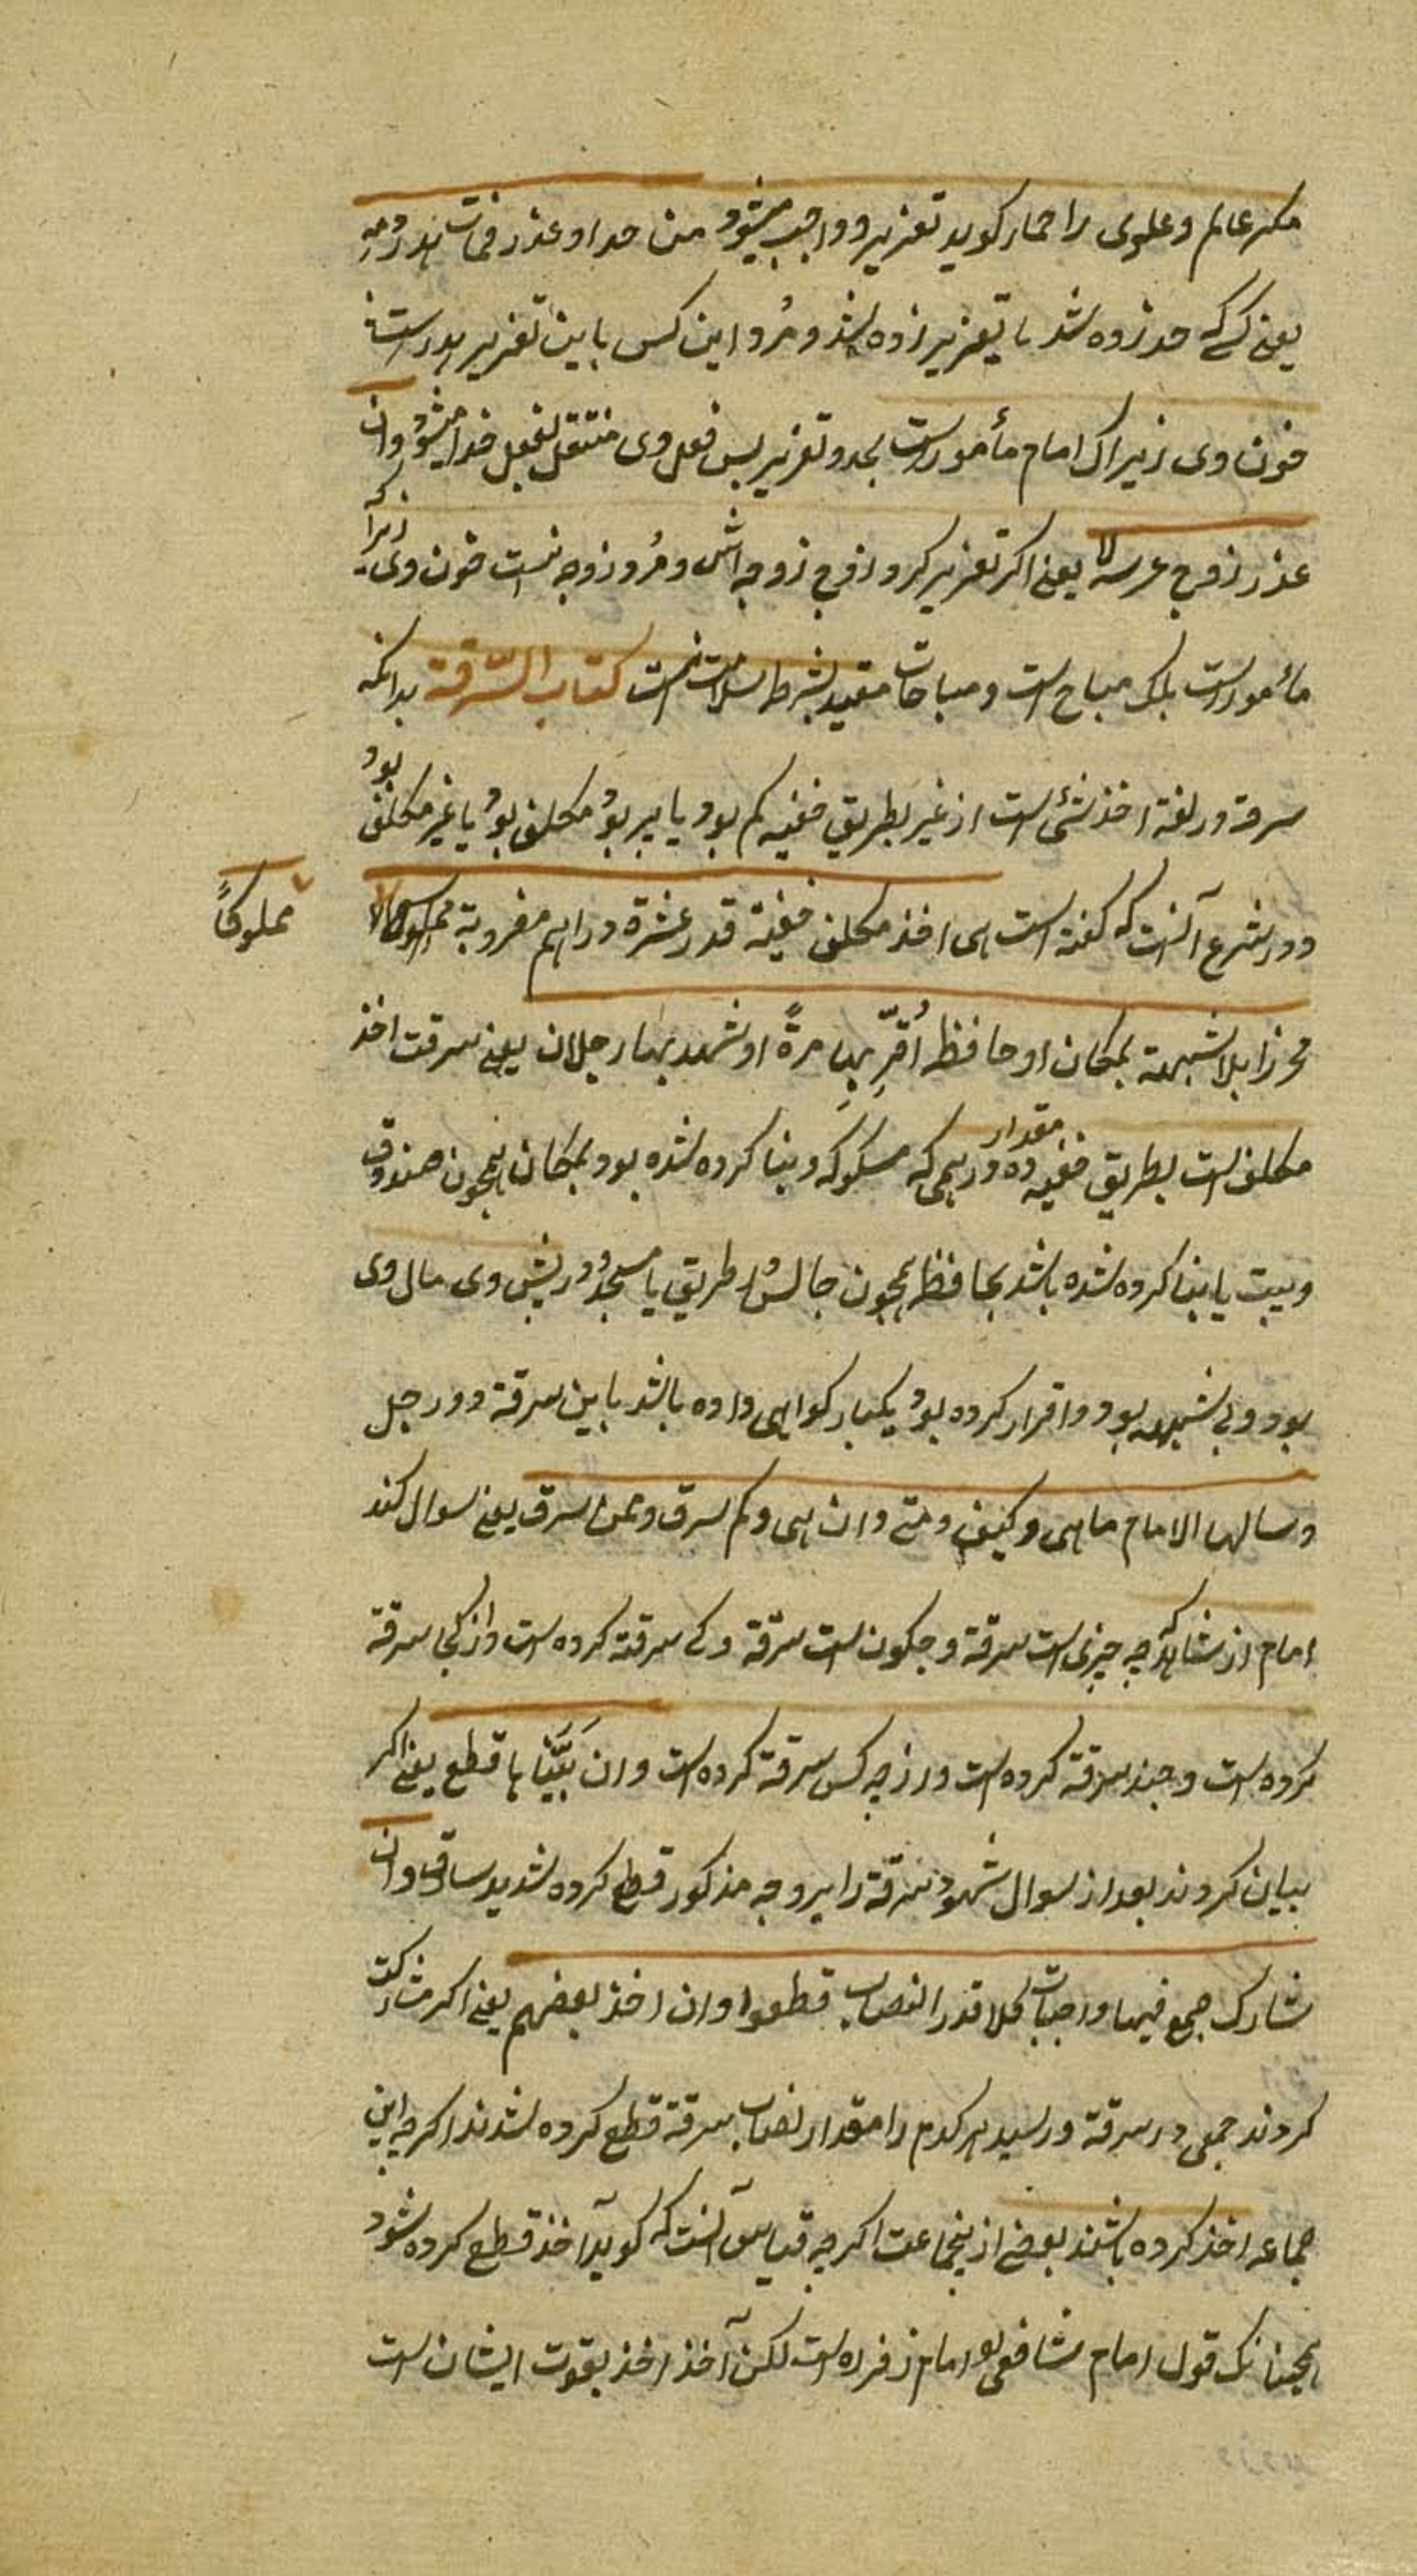 مکر عالم و علوی را حمار کوید تعزیر و واجب میشود من حد او عذر فمات هدر دمه
یعنی کسی که حد زده شد یا تعزیر زده شد و مُرد این کس باین تعزیر هدر است
خون وی زیراک امام مأمور است بحد و تعزیر پس فعل وی منتقل بفعل خدا میشود وان
عذر زوج عرسه لا یعنی اکر تعزیر کرد زوج زوجه اش و مُرد زوجه نیست خون وی زیراکه
مأمور است بلک مباح است و مباحات مقید بشرط سلامت است کتاب السّرقة بدانکه
سرقه در لغة اخذ شئ است از غیر بطریق خفیه کم بود یا پر بود مکلف بود یا غیر مکلف بود
و در شرع آنست که کفته است هی اخذ مکلف خفیة قدر عشرة دراهم مضروبة
مملوکاً
محرزا بلا شبهة بمکان او حافظ اُقرّ بها مرةً او شهد بها رجلان یعنی سرقت اخذ
مکلف است بطریق خفیه مقدار ده درهمی که مسکوکه و بنا کرده شده بود بمکان همچون صندوق
و بیت یا بنا کرده شده باشد بحافظ همچون جالس در طریق یا مسجد و در پیش وی مال وی
بود و بی شبهه بود و اقرار کرده بود یکبار کواهی داده باشد باین سرقة دو رجل
و سالهما الامام ما هی و کیف و متی و این هی و کم سرق و ممن سرق یعنی سوال کند
امام از شاهد که چه چیزی است سرقة و چکونه است سرقة و کی سرقة کرده است و از کجا سرقة
کرده است و چند سرقة کرده است و از چه کس سرقة کرده است وان بَیَّنا ها قطع یعنی اکر
بیان کردند بعد از سوال شهود سرقة را بر وجه مذکور قطع کرده شد ید سارق وان
شارک جمع فیها و اصاب کلا قدر النصاب قطعوا وان اخذ بعضهم یعنی اکر مشارکت
کردند جمعی در سرقة و رسید هر کدم را مقدار نصاب سرقة قطع کرده شدند اکرچه این
جماعه اخذ کرده باشند بعضی از ینجماعت اکرچه قیاس آنست که کوید آخذ قطع کرده شود
همچنانک قول امام شافعی و امام زفر است لکن آخذ اخذ بقوت ایشان است